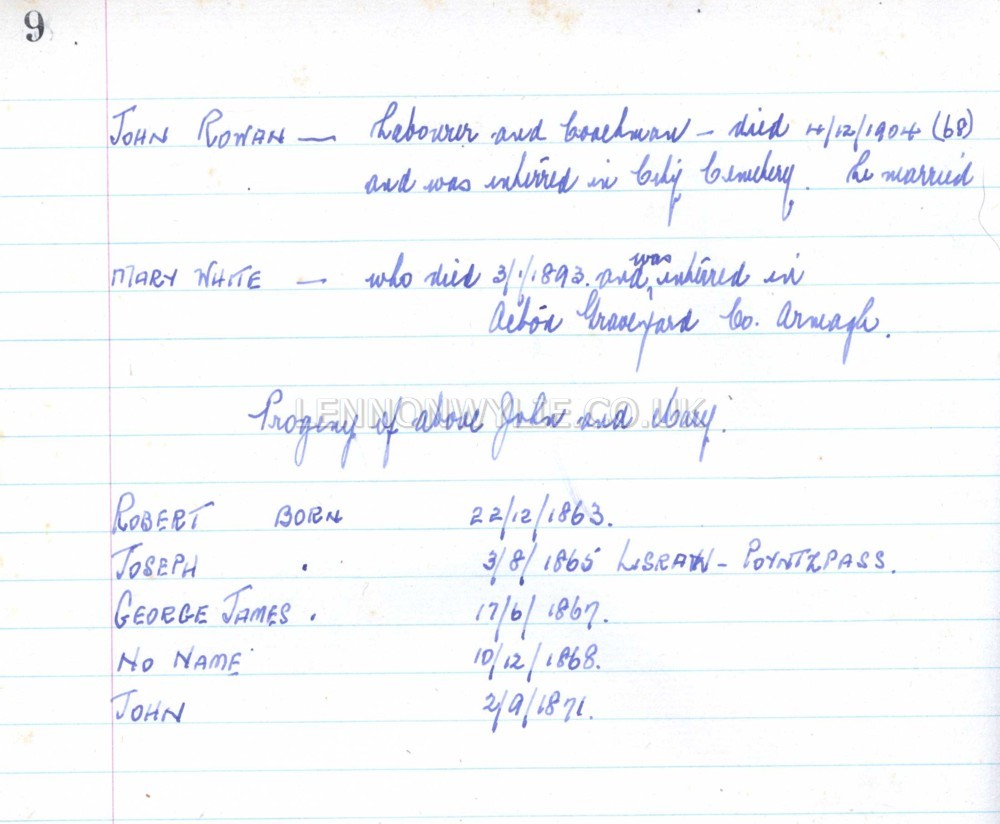 9
JOHN ROWAN — Labourer and Coachman - died 4/12/1904 (68)
and was interred in City Cemetery. he married
MARY WHITE — who died 3/1/1893. and was interred in
Acton Graveyard Co. Armagh.
Progeny of above John and Mary.
LENNONWYLIE.CO.UK
ROBERT BORN 22/12/1863.
JOSEPH . 3/8/1865 LISRAW - POYNTZPASS.
GEORGE JAMES . 17/6/1867.
NO NAME 10/12/1868.
JOHN 2/9/1871.